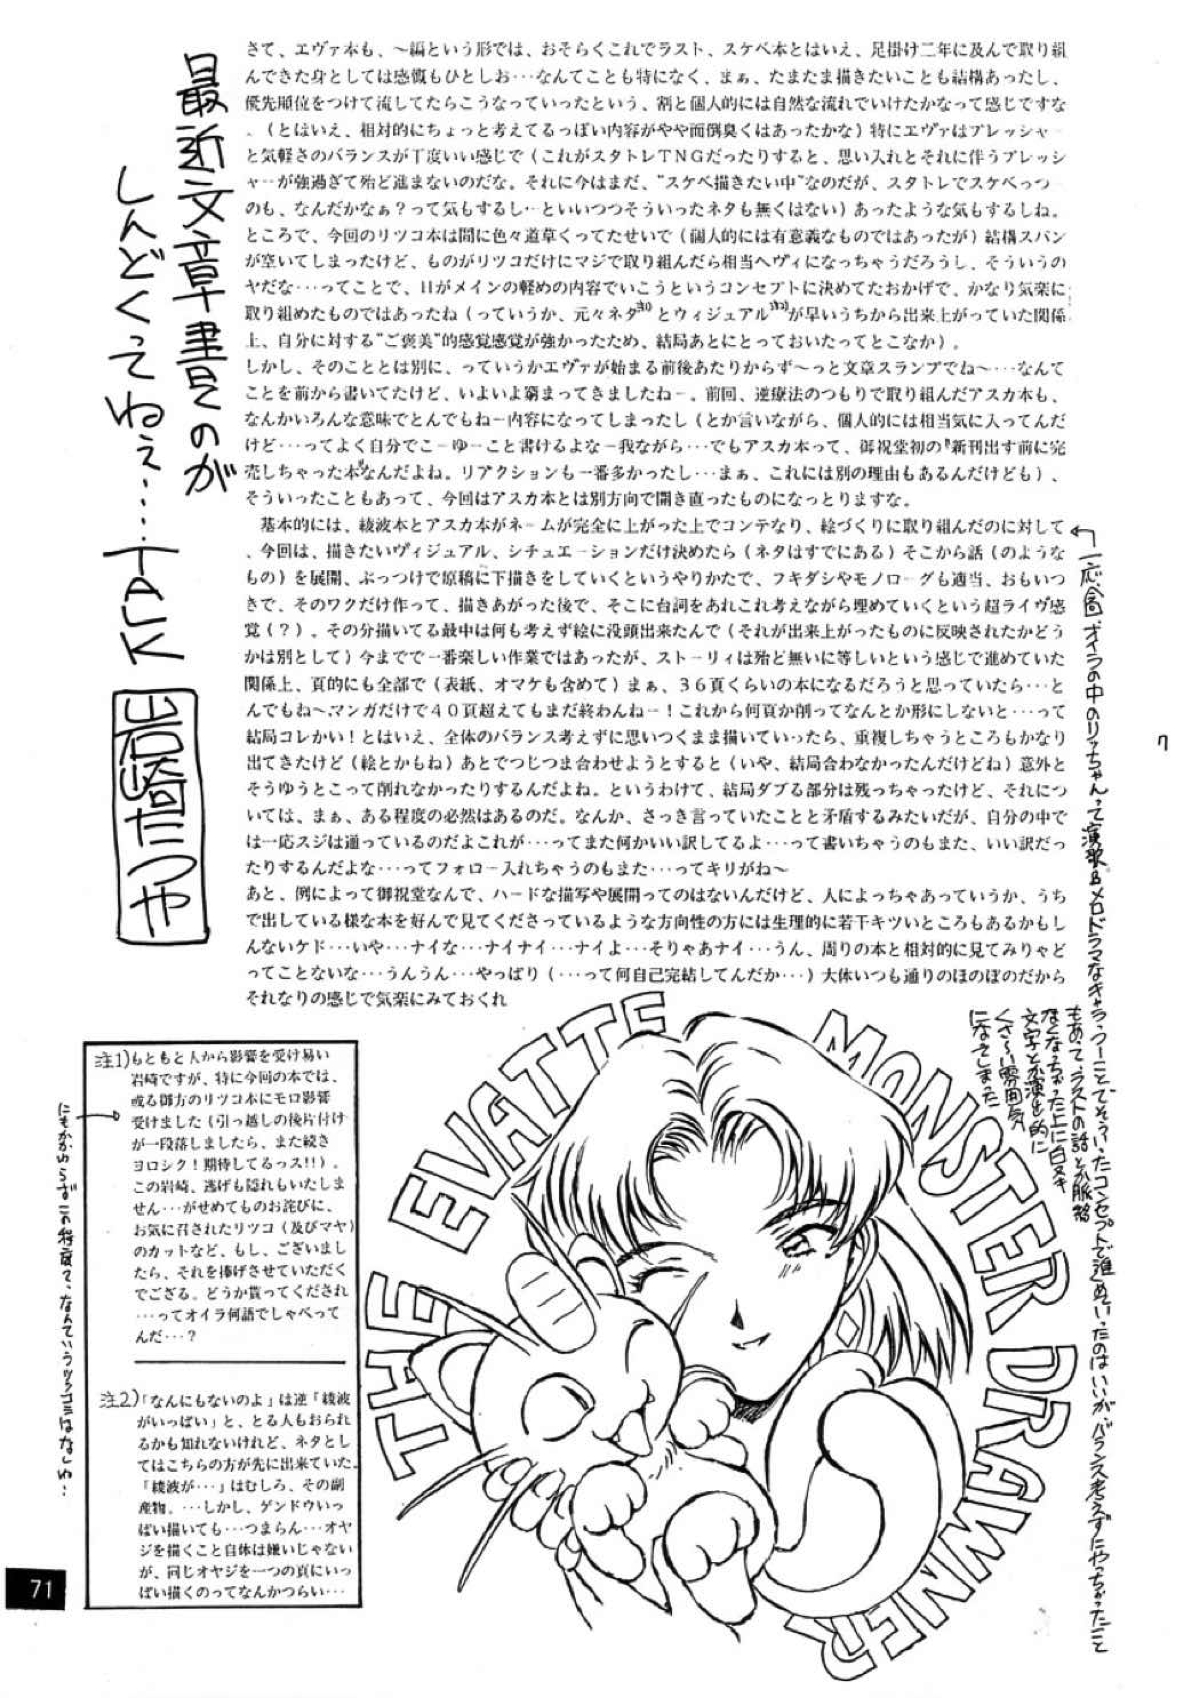 最近文章書くのが
しんどくってねぇ・・・・TALK
岩崎たつや
さて、エヴァ本も、～編という形では、おそらくこれでラスト、スケベ本とはいえ、足掛け二年に及んで取り組
んできた身としては感慨もひとしお・・・なんてことも特になく、まぁ、たまたま描きたいことも結構あったし、
優先順位をつけて流してたらこうなっていったという、割と個人的には自然な流れでいけたかなって感じですな
。（とはいえ、相対的にちょっと考えてるっぽい内容がやや面倒臭くはあったかな）特にエヴァはプレッシャー
と気軽さのバランスが丁度いい感じで（これがスタトレTNGだったりすると、思い入れとそれに伴うプレッシ
ャーが強過ぎて殆ど進まないのだな。それに今はまだ、“スケベ描きたい中”なのだが、スタトレでスケベっつ
のも、なんだかなぁ？って気もするし・・といいつつそういったネタも無くはない）あったような気もするしね。
ところで、今回のリツコ本は間に色々道草くってたせいで（個人的には有意義なものではあったが）結構スパン
が空いてしまったけど、ものがリツコだけにマジで取り組んだら相当ヘヴィになっちゃうだろうし、そういうの
ヤだな・・・ってことで、Hがメインの軽めの内容でいこうというコンセプトに決めてたおかげで、かなり気楽に
取り組めたものではあったね（っていうか、元々ネタ注1)とウィジュアル注2)が早いうちから出来上がっていた関係
上、自分に対する“ご褒美”的感覚感覚が強かったため、結局あとにとっておいたってとこなか）。
しかし、そのこととは別に、っていうかエヴァが始まる前後あたりからず～っと文章スランプでね～・・・なんて
ことを前から書いてたけど、いよいよ窮まってきましたねー。前回、逆療法のつもりで取り組んだアスカ本も、
なんかいろんな意味でとんでもねー内容になってしまったし（とか言いながら、個人的には相当気に入ってんだ
けど・・・ってよく自分でこーゆーこと書けるよなー我ながら・・・でもアスカ本って、御祝堂初の『新刊出す前に完
売しちゃった本』なんだよね。リアクションも一番多かったし・・・まぁ、これには別の理由もあるんだけども）、
そういったこともあって、今回はアスカ本とは別方向で開き直ったものになっとりますな。
基本的には、綾波本とアスカ本がネームが完全に上がった上でコンテなり、絵づくりに取り組んだのに対して
、今回は、描きたいヴィジュアル、シチュエーションだけ決めたら（ネタはすでにある）そこから話（のような
もの）を展開、ぶっつけで原稿に下描きをしていくというやりかたで、フキダシやモノローグも適当、おもいつ
きで、そのワクだけ作って、描きあがった後で、そこに台詞をあれこれ考えながら埋めていくという超ライヴ感
覚（？）。その分描いてる最中は何も考えず絵に没頭出来たんで（それが出来上がったものに反映されたかどう
かは別として）今までで一番楽しい作業ではあったが、ストーリィは殆ど無いに等しいという感じで進めていた
関係上、頁的にも全部で（表紙、オマケも含めて）まぁ、36頁くらいの本になるだろうと思っていたら・・・と
んでもね～マンガだけで40頁超えてもまだ終わんねー！これから何頁か削ってなんとか形にしないと・・・って
結局コレかい！とはいえ、全体のバランス考えずに思いつくまま描いていったら、重複しちゃうところもかなり
出てきたけど（絵とかもね）あとでつじつま合わせようとすると（いや、結局合わなかったんだけどね）意外と
そうゆうとこって削れなかったりするんだよね。というわけで、結局ダブる部分は残っちゃったけど、それにつ
いては、まぁ、ある程度の必然はあるのだ。なんか、さっき言っていたことと矛盾するみたいだが、自分の中で
は一応スジは通っているのだよこれが・・・ってまた何かいい訳してるよ・・・って書いちゃうのもまた、いい訳だっ
たりするんだよな・・・ってフォロー入れちゃうのもまた・・・ってキリがね～
あと、例によって御祝堂なんで、ハードな描写や展開ってのはないんだけど、人によっちゃあっていうか、うち
で出している様な本を好んで見てくださっているような方向性の方には生理的に若干キツいところもあるかもし
んないケド・・・いや・・・ナイな・・・ナイナイ・・・ナイよ・・・そりゃあナイ・・・うん、周りの本と相対的に見てみりゃど
ってことないな・・・うんうん・・・やっぱり（・・・って何自己完結してんだか・・・）大体いつも通りのほのぼのだから
それなりの感じで気楽にみておくれ
一応今回、オイラの中のリッちゃんって演歌&メロドラマなキャラっつーことでそういったコンセプトで進めていったのはいいがバランス考えずにやっちゃったこと
もあって、ラストの話とか脈絡
なくなっちゃった上に白ヌキ
文字とか演出的に
くさ～い雰囲気
になってしまった
7
注1)もともと人から影響を受け易い
岩崎ですが、特に今回の本では、
或る御方のリツコ本にモロ影響
受けました（引っ越しの後片付け
が一段落しましたら、また続き
ヨロシク！期待してるっス!!）。
この岩崎、逃げも隠れもいたしま
せん・・・がせめてものお詫びに、
お気に召されたリツコ（及びマヤ）
のカットなど、もし、ございまし
たら、それを捧げさせていただく
でござる。どうか貰ってくだされ
・・・ってオイラ何語でしゃべって
んだ・・・？
にもかかわらずこの程度て、なんていうツッコミはなしね・・
注2)「なんにもないのよ」は逆「綾波
がいっぱい」と、とる人もおられ
るかも知れないけれど、ネタとし
てはこちらの方が先に出来ていた。
「綾波が・・・」はむしろ、その副
産物。・・・しかし、ゲンドウいっ
ぱい描いても・・・つまらん・・・オヤ
ジを描くこと自体は嫌いじゃない
が、同じオヤジを一つの頁にいっ
ぱい描くのってなんかつらい・・・
THE EVATTE MONSTER DRAWINER
71